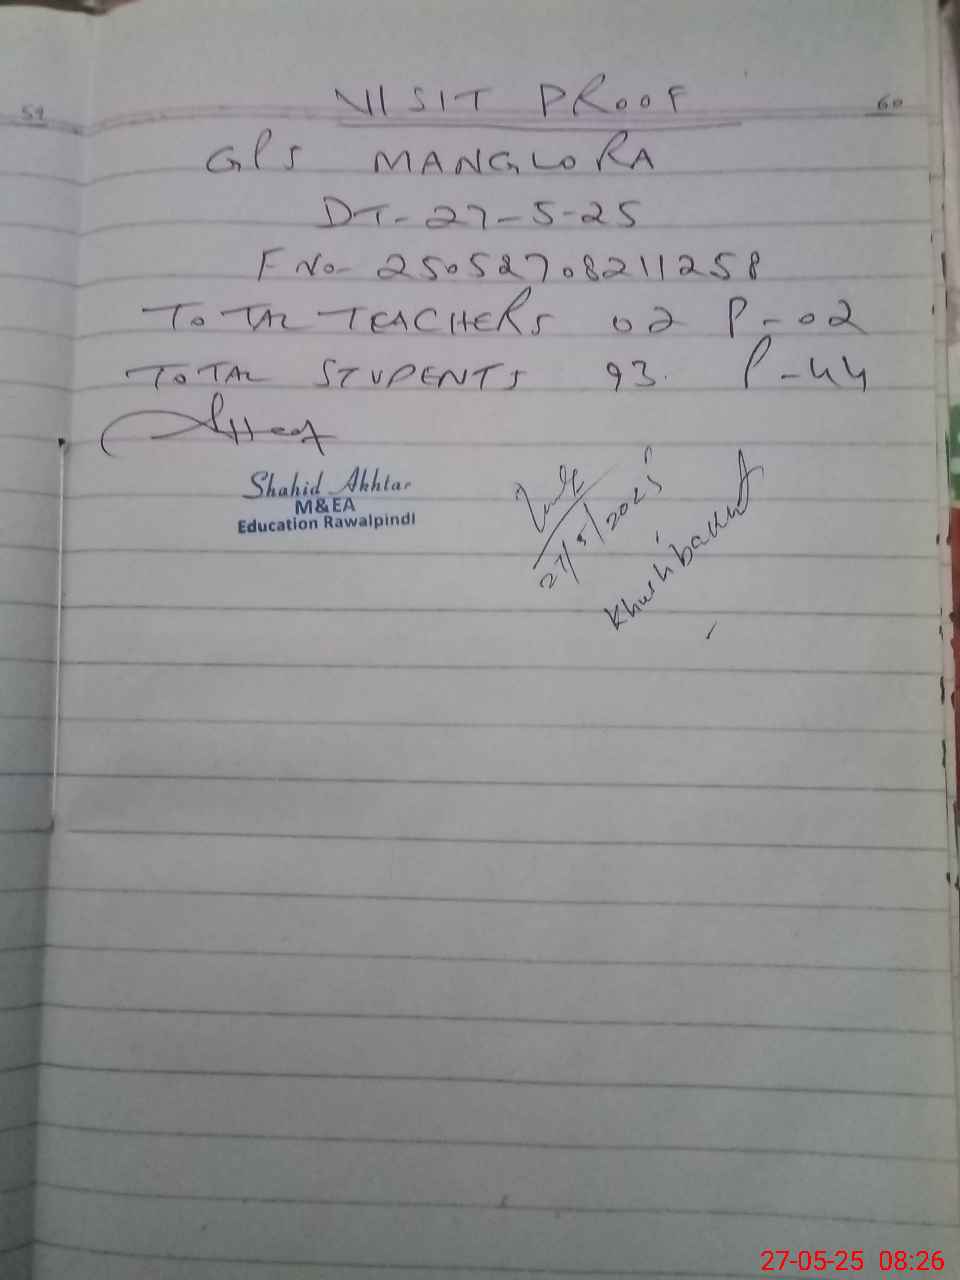 59
60
VISIT PROOF
GPS MANGLORA
DT- 27-5-25
F No- 25052708211258
TOTAL TEACHERS 02 P-02
TOTAL STUDENTS 93. P-44
Shahid Akhtar
M&EA
Education Rawalpindi
27/5/2025
Khushbakht
27-05-25 08:26